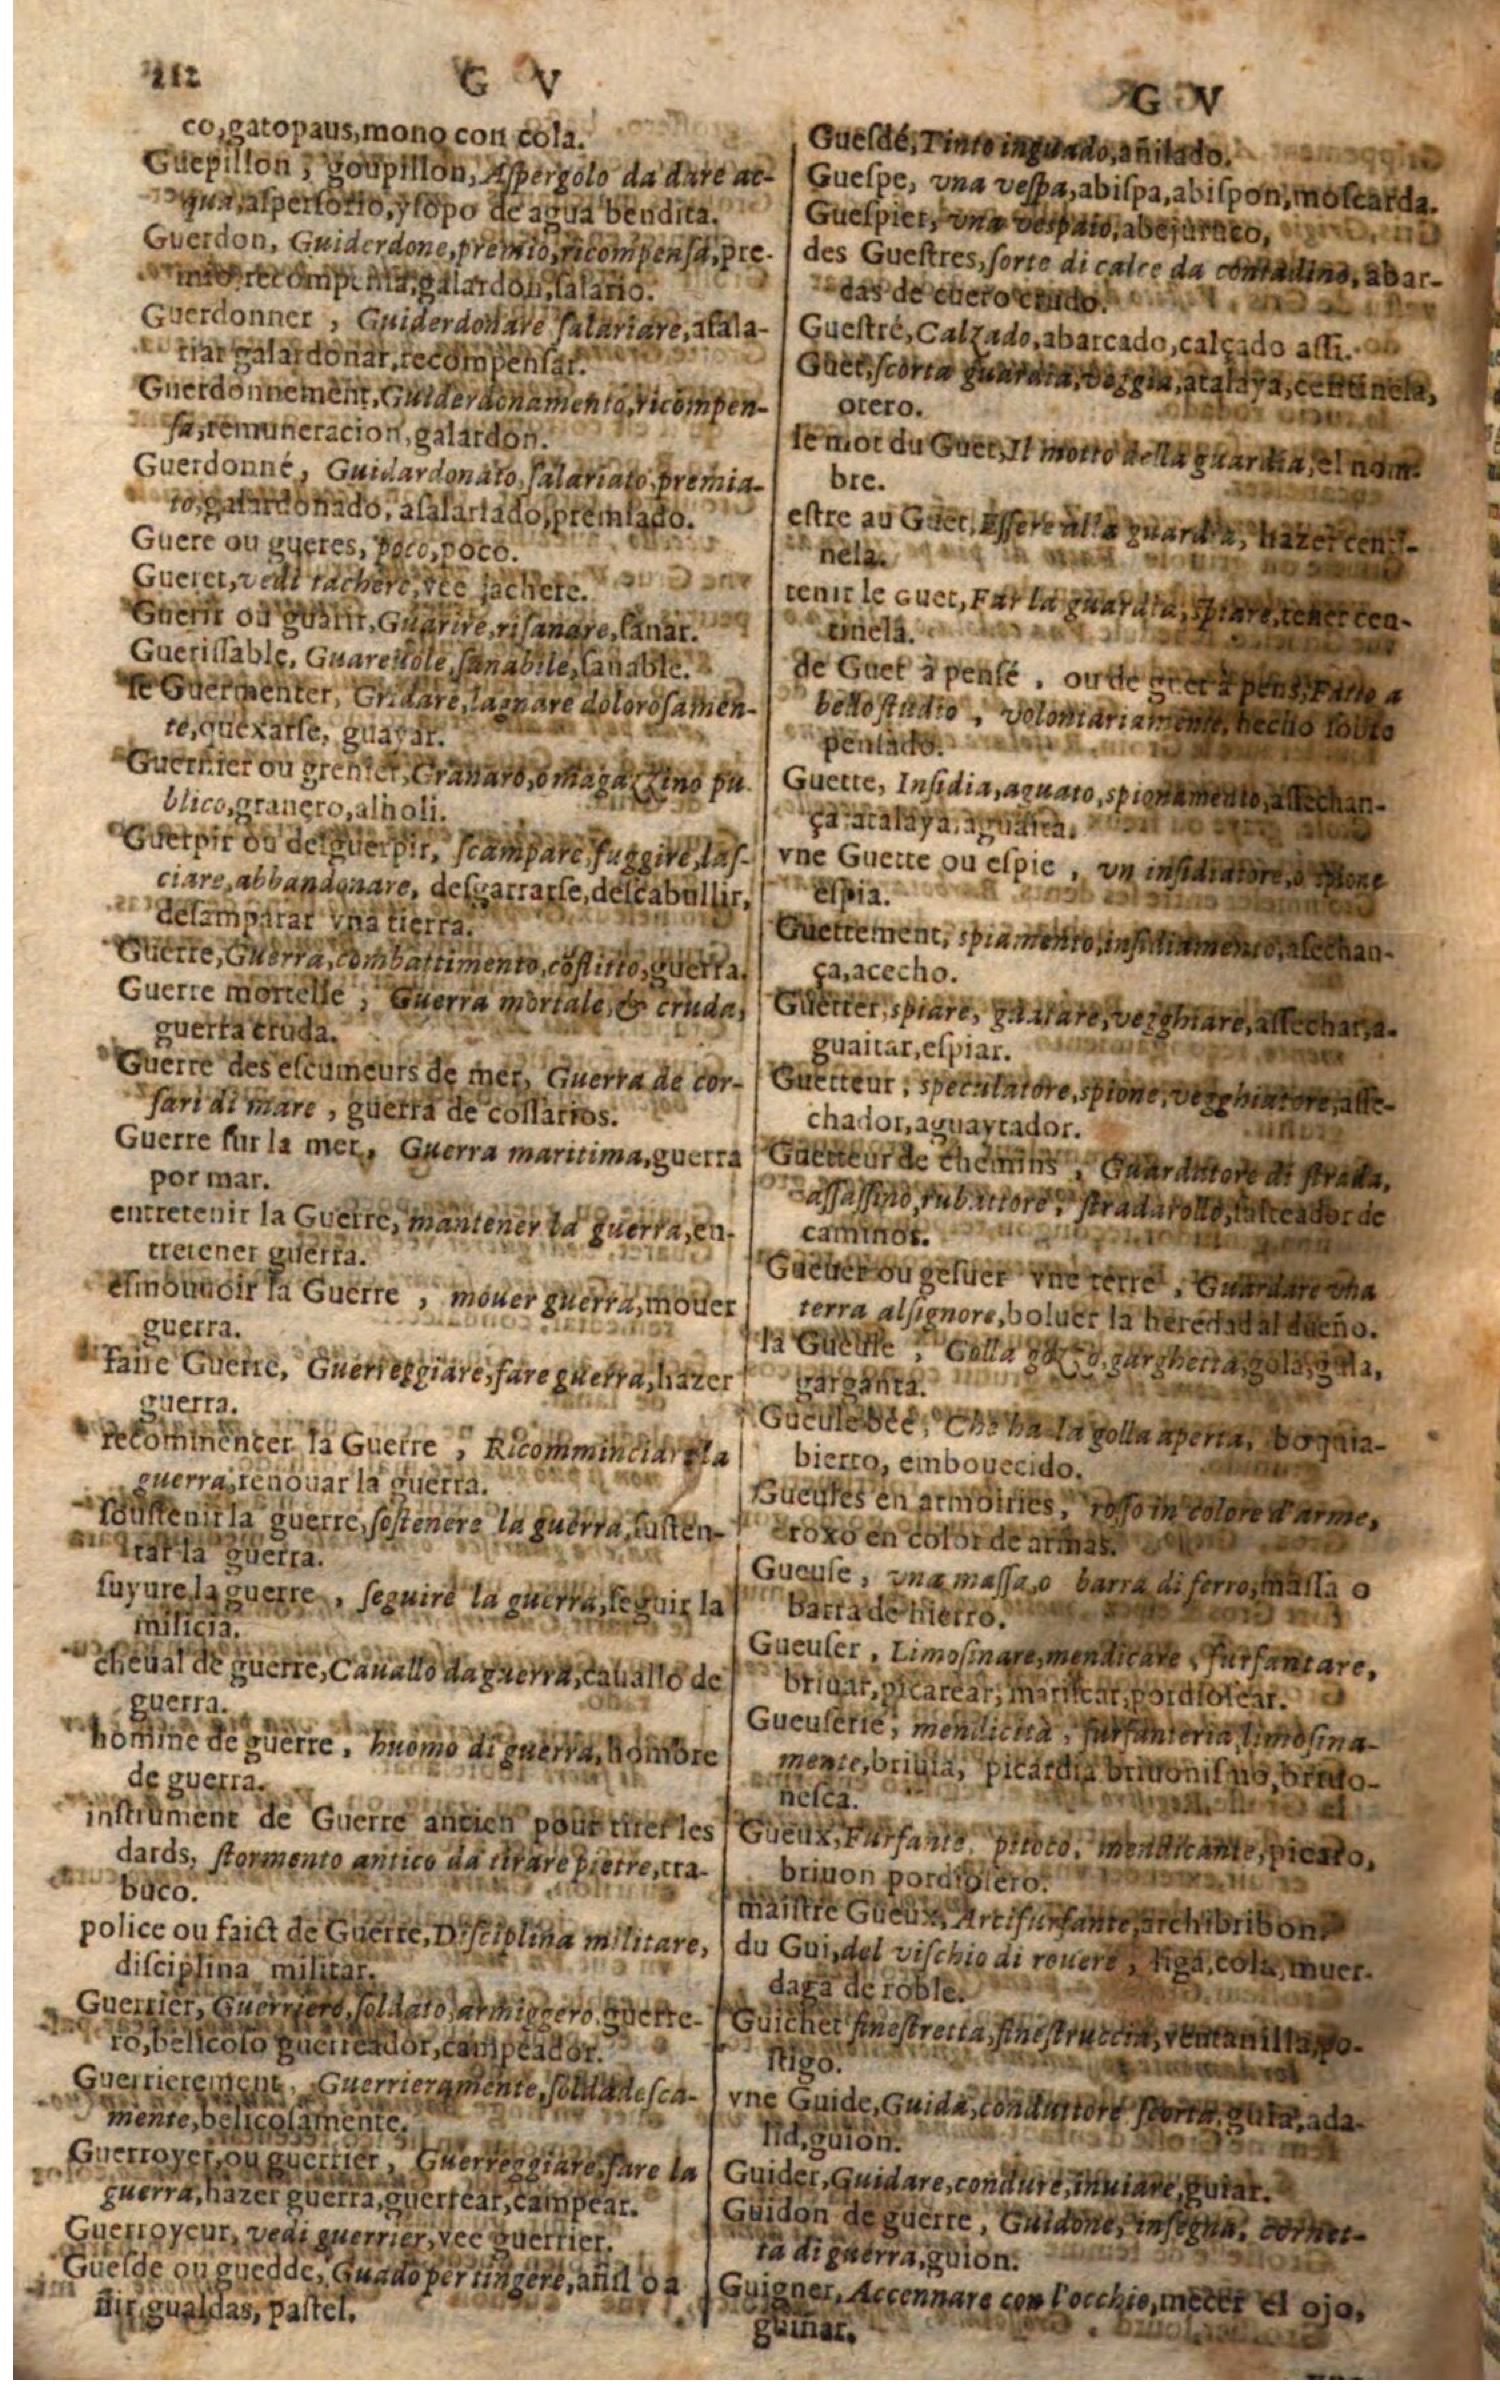 212 G V
co,gatopaus,mono con cola.
Guepillon, goupillon, Aſpergolo da dare ac-
qua,aſperſorio,yſopo de agua bendita.
Guerdon, Guiderdone,premio,ricompenſa,pre-
mio,recompenſa,galardon,ſalario.
Guerdonner, Guiderdonare ſalariare,aſala-
riar galardonar,recompenſar.
Guerdonnement,Guiderdonamento,ricompen-
ſa,remuneracion,galardon.
Guerdonné, Guidardonato,ſalariato,premia-
to,galardonado, aſalariado,premiado.
Guere ou gueres, poco,poco.
Gueret,vedi iachere,vee jachere.
Guerir ou guarir,Guarire,riſanare,ſanar.
Gueriſſable, Guareuole,ſanabile,ſanable.
ſe Guermenter, Gridare,lagnare doloroſamen-
te,quexarſe, guayar.
Guernier ou grenier,Granaro,o magazzino pu-
blico,granero,alholi.
Guerpir ou deſguerpir, ſcampare,fuggire,laſ-
ciare,abbandonare, deſgarrarſe,deſcabullir,
deſamparar vna tierra.
Guerre,Guerra,combattimento,cōflitto,guerra.
Guerre mortelle, Guerra mortale,& cruda,
guerra cruda.
Guerre des eſcumeurs de mer, Guerra de cor-
ſari di mare, guerra de coſſarios.
Guerre ſur la mer, Guerra maritima,guerra
por mar.
entretenir la Guerre, mantener la guerra,en-
tretener guerra.
eſmouuoir la Guerre, mouer guerra,mouer
guerra.
faire Guerre, Guerreggiare,fare guerra,hazer
guerra.
recommencer la Guerre, Ricomminciar la
guerra,renouar la guerra.
ſouſtenir la guerre,ſoſtenere la guerra,ſuſten-
tar la guerra.
ſuyure la guerre, ſeguire la guerra,ſeguir la
milicia.
cheual de guerre,Cauallo da guerra,cauallo de
guerra.
homme de guerre, huomo di guerra,hombre
de guerra.
inſtrument de Guerre ancien pour tirer les
dards, ſtormento antico da tirare pietre,tra-
buco.
police ou faict de Guerre,Diſciplina militare,
diſciplina militar.
Guerrier, Guerriero,ſoldato,armiggero,guerre-
ro,belicoſo guerreador,campeador.
Guerrierement, Guerrieramente,ſoldadeſca-
mente,belicoſamente.
Guerroyer,ou guerrier, Guerreggiare,fare la
guerra,hazer guerra,guerrear,campear.
Guerroyeur, vedi guerrier,vee guerrier.
Gueſde ou guedde, Guado per tingere,añil o a
ñir,gualdas, paſtel.
G V
Gueſdé,Tinto inguado,añilado.
Gueſpe, vna veſpa,abiſpa,abiſpon,moſcarda.
Gueſpier, vna veſpaio,abejaruco,
des Gueſtres,ſorte di calce da contadino, abar-
cas de cuero crudo.
Gueſtré,Calzado,abarcado,calçado aſſi.
Guet,ſcorta guardia,veggia,atalaya,centinela,
otero.
le mot du Guet,Il motto della guardia,el nom-
bre.
eſtre au Guet,Eſſere alla guardia, hazer centi-
nela.
tenir le Guet,Far la guardia, ſpiare,tener cen-
tinela.
de Guet à penſé, ou de guet à pens,Fatto a
bello ſtudio, volontariamente,hecho ſobre
penſado.
Guette, Inſidia,aguato,spionamento,aſſechan-
ça atalaya,aguaita.
vne Guette ou eſpie, vn inſidiatore,o ſpione
eſpia.
Guettement, spiamento,inſidiamento,aſechan-
ça,acecho.
Guetter,spiare, guatare,vegghiare,aſſechar,a-
guaitar,eſpiar.
Guetteur, speculatore,spione,vegghiatore,aſſe-
chador,aguaytador.
Guetteur de chemins, Guardatore di ſtrada,
aſſaſſino,rubattore, ſtradarollo,ſalteador de
caminos.
Gueuer ou geſuer vne terre, Guardare vna
terra al ſignore,boluer la heredad al dueño.
la Gueule, Golla gozzo,garghetta,gola,gula,
garganta.
Gueule bée, Che ha la golla aperta, boquia-
bierto, embouecido.
Gueules en armoiries, roſſo in colore d'arme,
roxo en color de armas.
Gueuſe, vna maſſa,o barra di ferro,maſſa o
barra de hierro.
Gueuſer, Limoſinare,mendicare, furfantare,
briuar,picarear, mariſcar,pordioſear.
Gueuſerie, mendicità, furfanteria,limoſina-
mente,briuia, picardia briuoniſmo,briuo-
neſca.
Gueux,Furfante, pitoco, mendicante,picaro,
briuon pordioſero.
maiſtre Gueux, Arcifurfante,archibribon.
du Gui,del viſchio di rouere, liga,cola,muer-
daga de roble.
Guichet fineſtretta,fineſtruccia,ventanilla,po-
ſtigo.
vne Guide,Guida,conduttore ſcorta,guia,ada-
lid,guion.
Guider,Guidare,condure,inuiare,guiar.
Guidon de guerre, Guidone, inſegna, cornet-
ta di guerra,guion.
Guigner,Accennare con l'occhio,mecer el ojo,
guiñar.